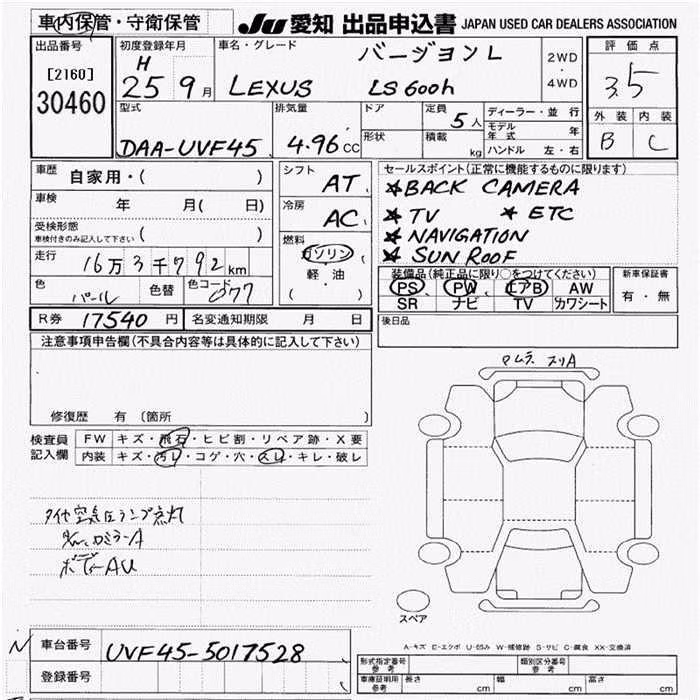 車内保管・守衛保管 JU 愛知 出品申込書 JAPAN USED CAR DEALERS ASSOCIATION
出品番号 初度登録年月 車名・グレード バージョンL 2WD・4WD 評価点
[2160] H 3.5
30460 25 9月 LEXUS LS600h
型式 排気量 ドア 定員 5人 ディーラー・並行 外装 内装
DAA-UVF45 4.96cc 形状 積載 kg モデル年式 年 B C
ハンドル 左・右
車歴 自家用・( ) シフト AT セールスポイント(正常に機能するものに限ります)
車検 年 月( 日) 冷房 AC ★BACK CAMERA
受検形態 ( ) ★TV ★ETC
車検付きのみ記入して下さい ★NAVIGATION
走行 16万3千792km 燃料 ガソリン ★SUN ROOF
軽・油
( )
色 パール 色替 色コード 077 装備品(純正品に限り○をつけてください) 新車保証書
PS PW エアB AW 有・無
SR ナビ TV カワシート
R券 17540円 名変通知期限 月 日 後日品
注意事項申告欄(不具合内容等は具体的に記入して下さい)
修復歴 有 (箇所
検査員記入欄 FW キズ・飛石・ヒビ割・リペア跡・X要
内装 キズ・汚レ・コゲ・穴・スレ・キレ・破レ
タイヤ空気圧ランプ点灯
ミラーA
ボディーAU
スペア
A-キズ E-エクボ U-凹み W-補修跡 S-サビ C-腐食 XX-交換済
N 車台番号 UVF45-5017528
登録番号
形式指定番号 参考 類別区分番号 参考
車庫証明用 参考 長さ cm 幅 cm 高さ cm